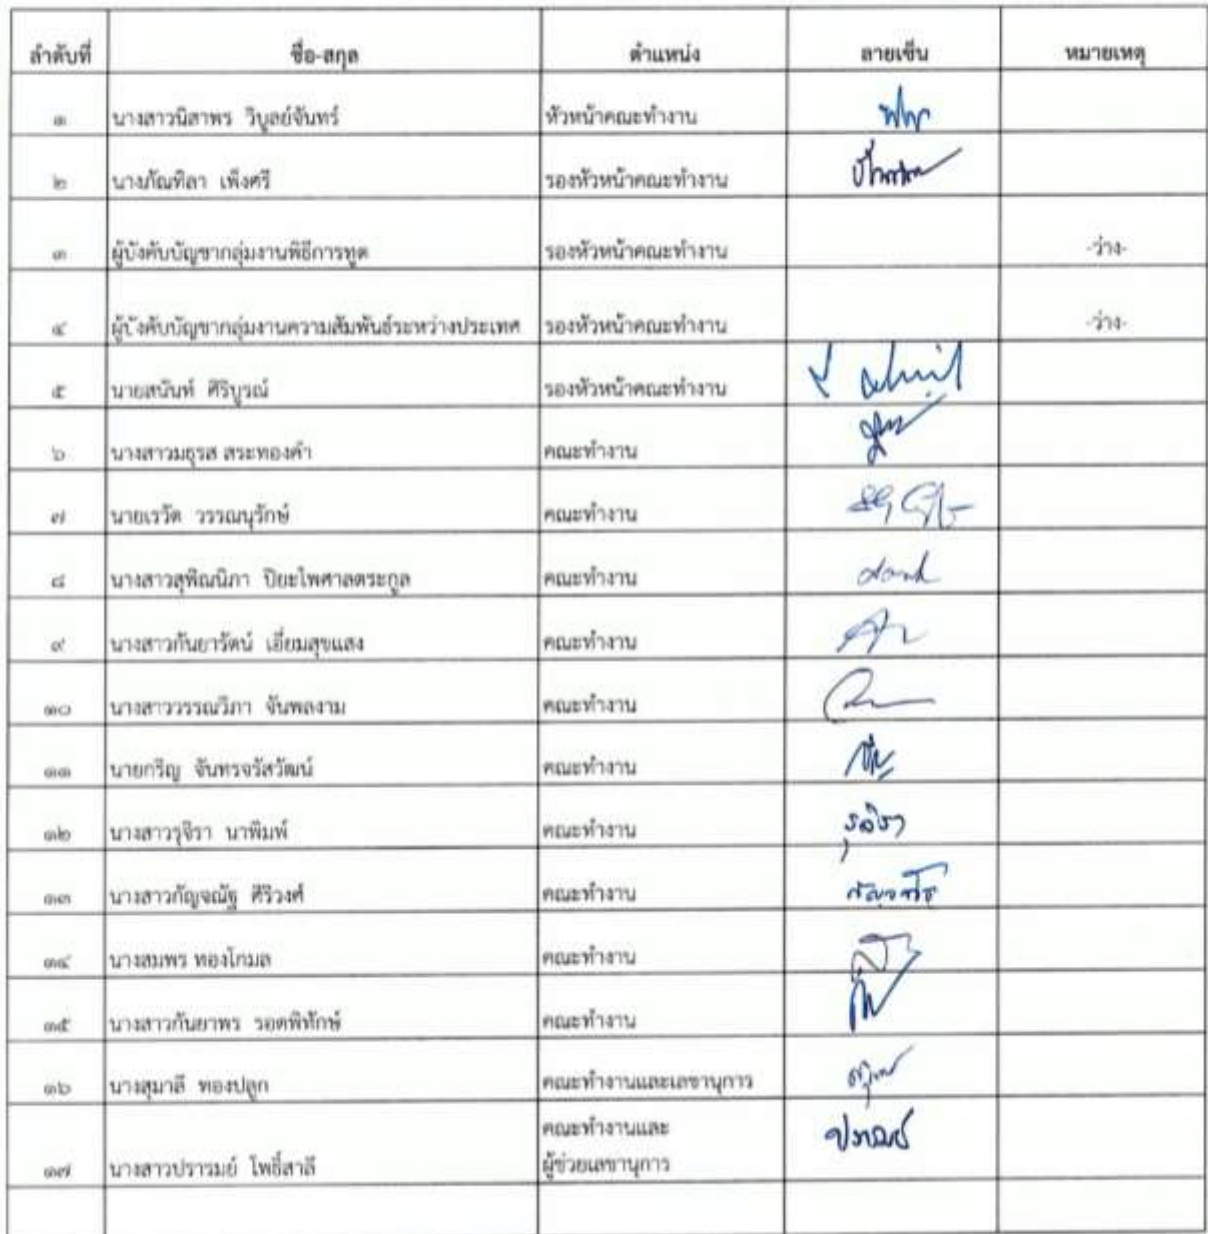 ลำดับที่ ชื่อ-สกุล ตำแหน่ง ลายเซ็น หมายเหตุ
๑ นางสาวนิสาพร วิบูลย์จันทร์ หัวหน้าคณะทำงาน
๒ นางภัณฑิลา เพ็งศรี รองหัวหน้าคณะทำงาน
๓ ผู้บังคับบัญชากลุ่มงานพิธีการทูต รองหัวหน้าคณะทำงาน -ว่าง-
๔ ผู้บังคับบัญชากลุ่มงานความสัมพันธ์ระหว่างประเทศ รองหัวหน้าคณะทำงาน -ว่าง-
๕ นายสนันท์ ศิริบูรณ์ รองหัวหน้าคณะทำงาน
๖ นางสาวมธุรส สระทองคำ คณะทำงาน
๗ นายเรวัต วรรณนุรักษ์ คณะทำงาน
๘ นางสาวสุพิณนิภา ปิยะไพศาลตระกูล คณะทำงาน
๙ นางสาวกันยารัตน์ เอี่ยมสุขแสง คณะทำงาน
๑๐ นางสาววรรณวิภา จันพลงาม คณะทำงาน
๑๑ นายกริญ จันทรจรัสวัฒน์ คณะทำงาน
๑๒ นางสาวรุจิรา นาพิมพ์ คณะทำงาน รุจิรา
๑๓ นางสาวกัญจณัฐ ศิริวงศ์ คณะทำงาน กัญจณัฐ
๑๔ นางสมพร ทองโกมล คณะทำงาน
๑๕ นางสาวกันยาพร รอดพิทักษ์ คณะทำงาน
๑๖ นางสุมาลี ทองปลูก คณะทำงานและเลขานุการ
คณะทำงานและ
๑๗ นางสาวปรารมย์ โพธิ์สาลี ผู้ช่วยเลขานุการ ปรารมย์